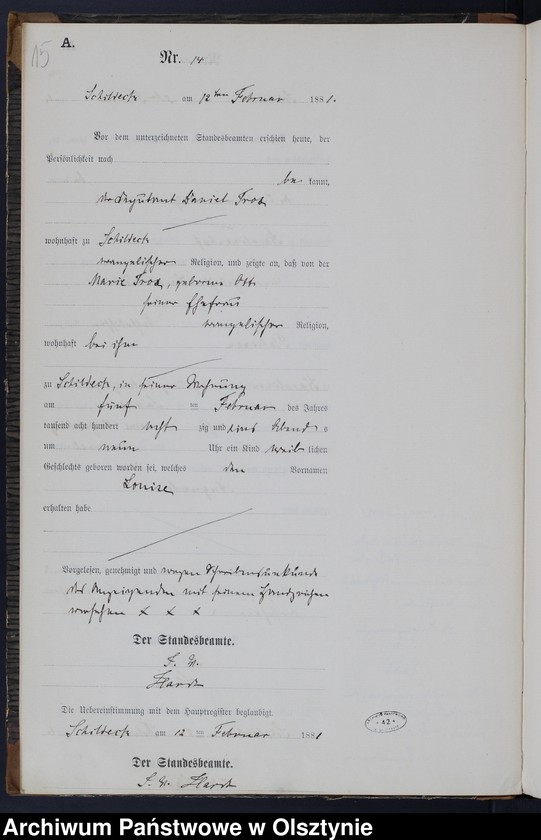 15
A.
Nr. 14
Schildeck am 12ten Februar 1881.
Vor dem unterzeichneten Standesbeamten erschien heute, der
Persönlichkeit nach
be kannt,
der Deputant Daniel Trox
wohnhaft zu Schildeck
evangelischer Religion, und zeigte an, daß von der
Marie Trox, geborene Ott
seiner Ehefrau
evangelischer Religion,
wohnhaft bei ihm
zu Schildeck, in seiner Wohnung
am fünf ten Februar des Jahres
tausend acht hundert acht zig und eins Abends
um neun Uhr ein Kind weib lichen
Geschlechts geboren worden sei, welches den Vornamen
Louise
erhalten habe
Vorgelesen, genehmigt und wegen Schreibensunkunde
des Anzeigenden mit seinem Handzeichen
versehen x x x
Der Standesbeamte.
Hardt
Die Uebereinstimmung mit dem Hauptregister beglaubigt.
Schildeck am 12 ten Februar 1881
Der Standesbeamte.
Hardt
Archiwum Państwowe w Olsztynie